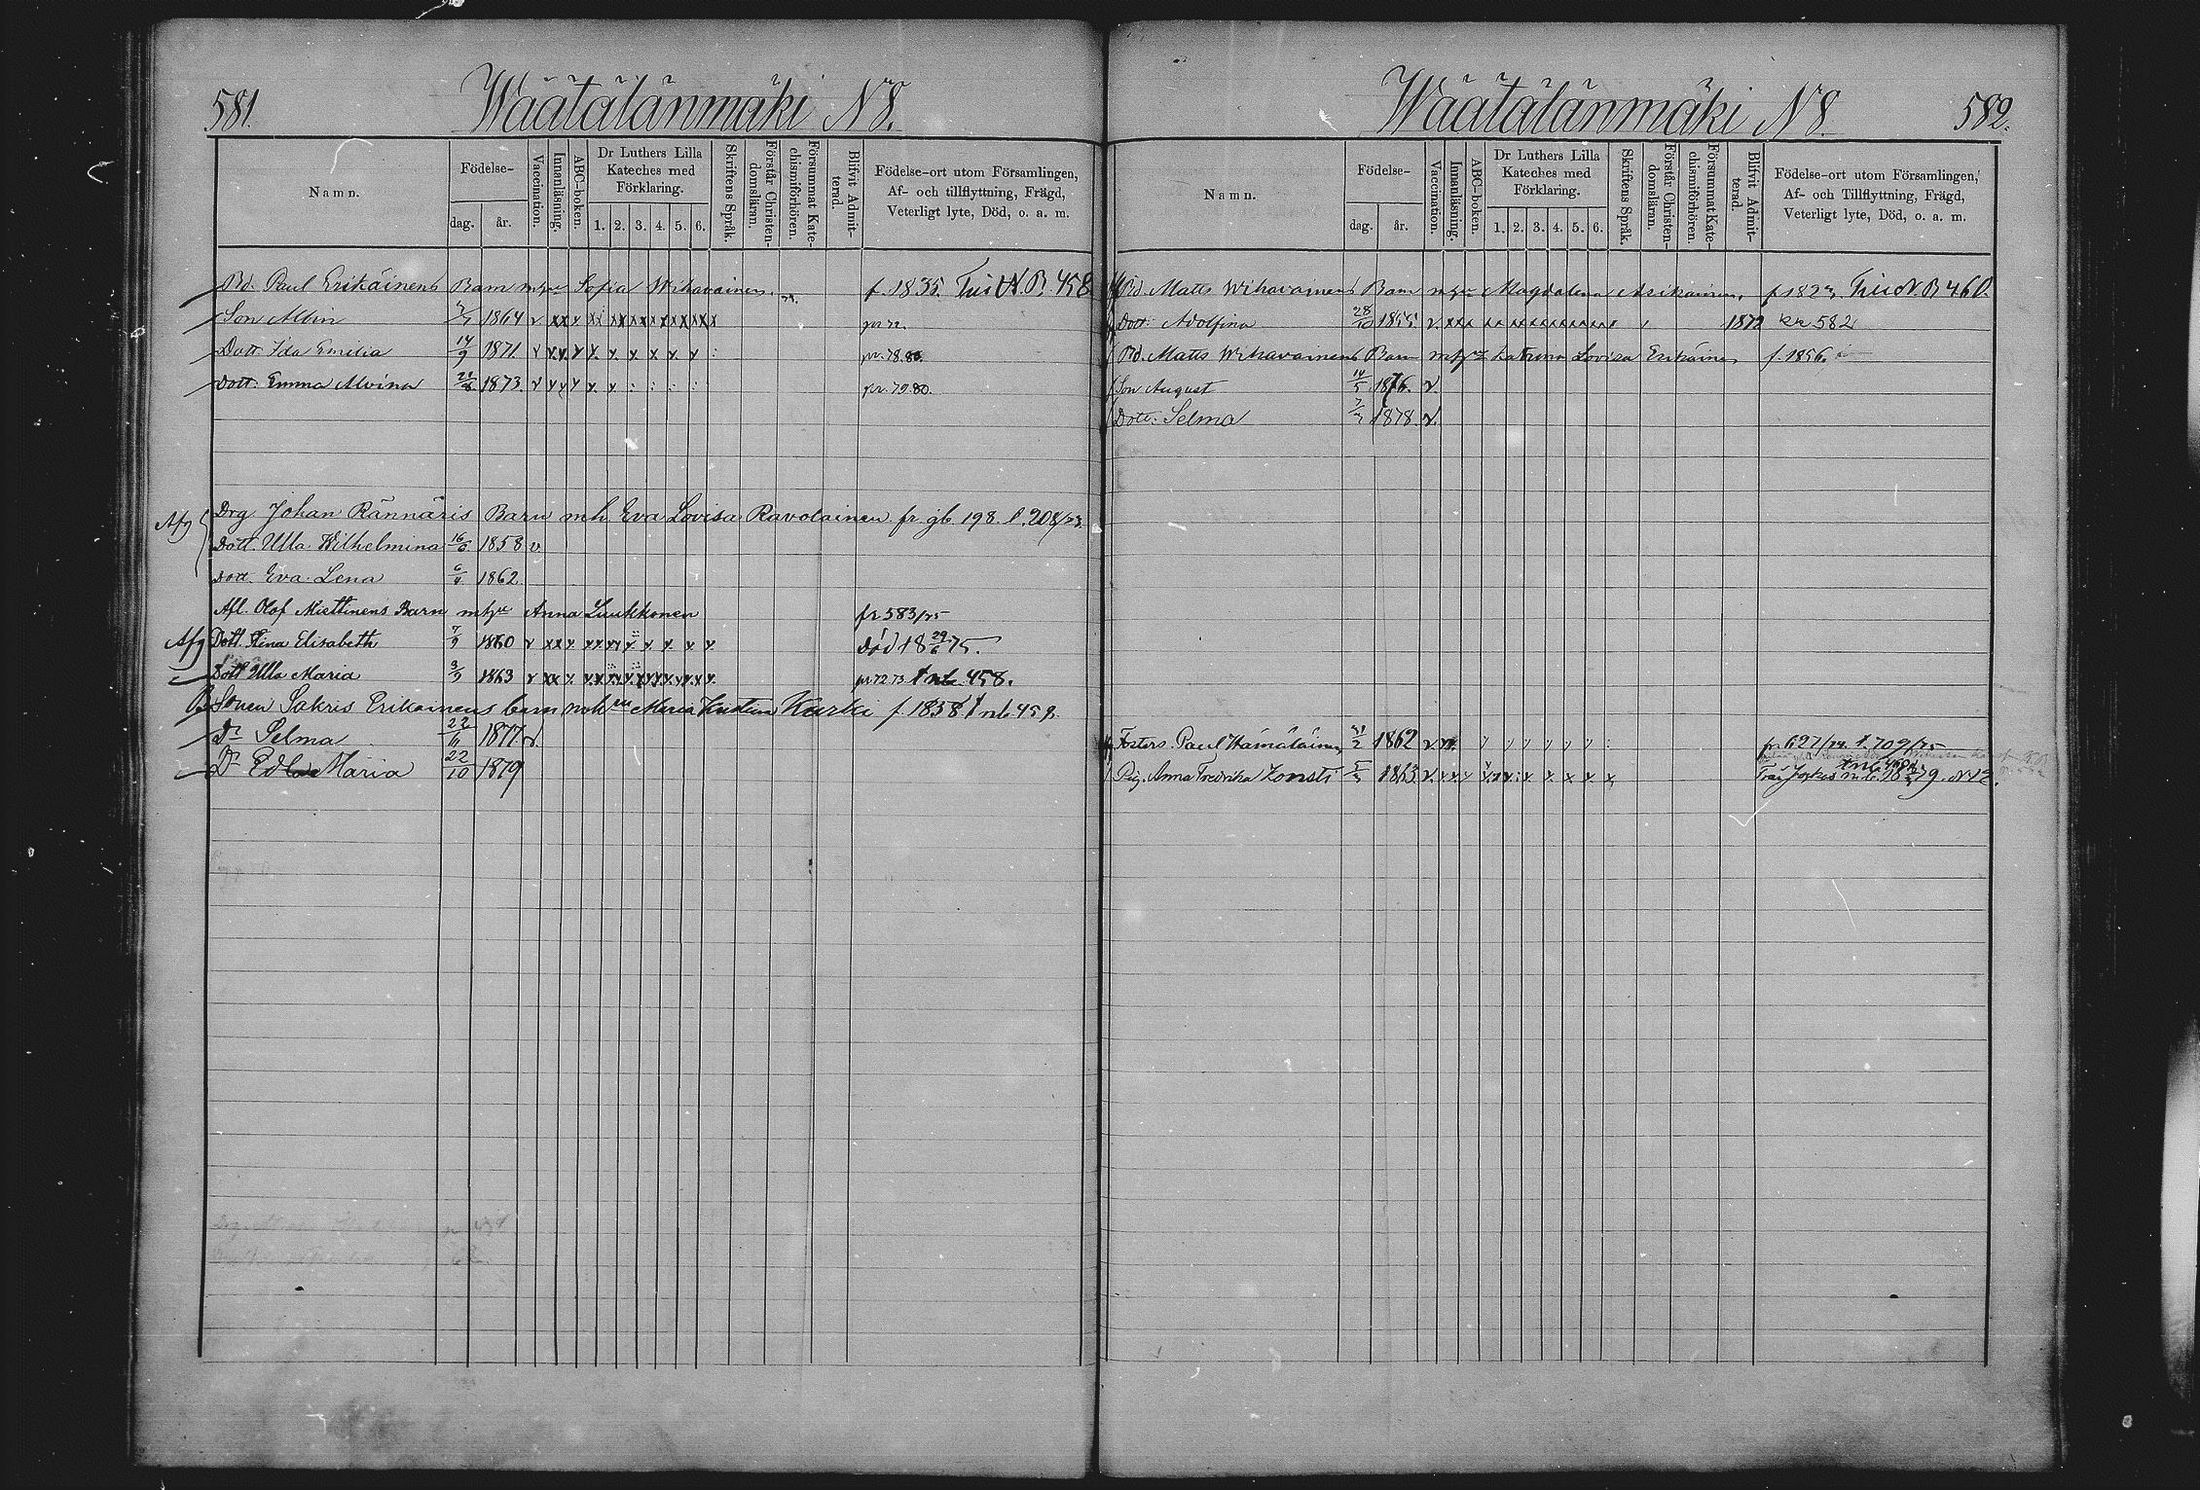 581.
Wäätälänmäki N8.
Namn.
Födelse-
dag.
år.
Vaccination.
Innanläsning.
ABC-boken.
Dr Luthers Lilla
Kateches med
Förklaring.
1. 2. 3. 4. 5. 6.
Skriftens Språk.
Förstår Christen-
domsläran.
Försummat Kate-
chismiförhören.
Blifvit Admit-
terad.
Födelse-ort utom Församlingen,
Af- och tillflyttning, Frägd,
Veterligt lyte, Död, o. a. m.
Bd. Paul Erikäinens Barn m hu Sofia Wihavainen f. 1835. N.B. 458
Son Albin 1864 v xx x xx xx xx xx xx xx pr 72.
Dott. Ida Emilia 14/9 1871 v x.x. x x. x. x x x x : pr. 78.80.
Dott: Emma Alvina 1873. v x x x x. x : : : : pr. 79.80.
Afg
Drg Johan Rännäris Barn m h. Eva Lovisa Ravolainen fr. gb. 198.
Dott. Ulla Wilhelmina 1858 v
Dott. Eva Lena 6/4 1862.
Afl. Olof Miettinens Barn m hu Anna Luukkonen fr 583/75
Afg Dott. Stina Elisabeth 7/9 1860 v xx x. xx xx x. x x x x. Död 18 29/6 75.
Dott. Ulla Maria 3/9 1863 v xx x. pr 72 73 nb. 458.
Sonen Sakris Erikainens barn m h Maria Kristina Kurki f. 1838 nb 458.
Dr Selma 22/11 1877 v.
Dr Edla Maria 22/10 1879
Wäätälänmäki N8.
582.
Namn.
Födelse-
dag.
år.
Vaccination.
Innanläsning.
ABC-boken.
Dr Luthers Lilla
Kateches med
Förklaring.
1. 2. 3. 4. 5. 6.
Skriftens Språk.
Förstår Christen-
domsläran.
Försummat Kate-
chismiförhören.
Blifvit Admit-
terad.
Födelse-ort utom Församlingen,
Af- och Tillflyttning, Frägd,
Veterligt lyte, Död, o. a. m.
Bd. Matts Wihavainens Barn m hu Magdalena Asikainen. N.B 460.
Dott: Adolfina 28/10 1855 v. xxx 1872 582
Bd. Matts Wihavainens Barn m hu Lovisa Erikäinen f. 1856.
Son August 14/5 1876. v.
Dott: Selma 1878. v.
Fosters. Paul Hämäläinen 1862 v fr 627/74. t. 709/75
Pig. Anna Fredrika Zonsti 1863 v.